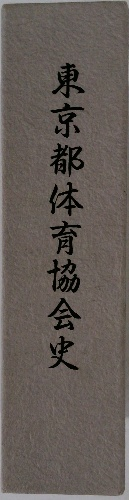 東京都体育協会史